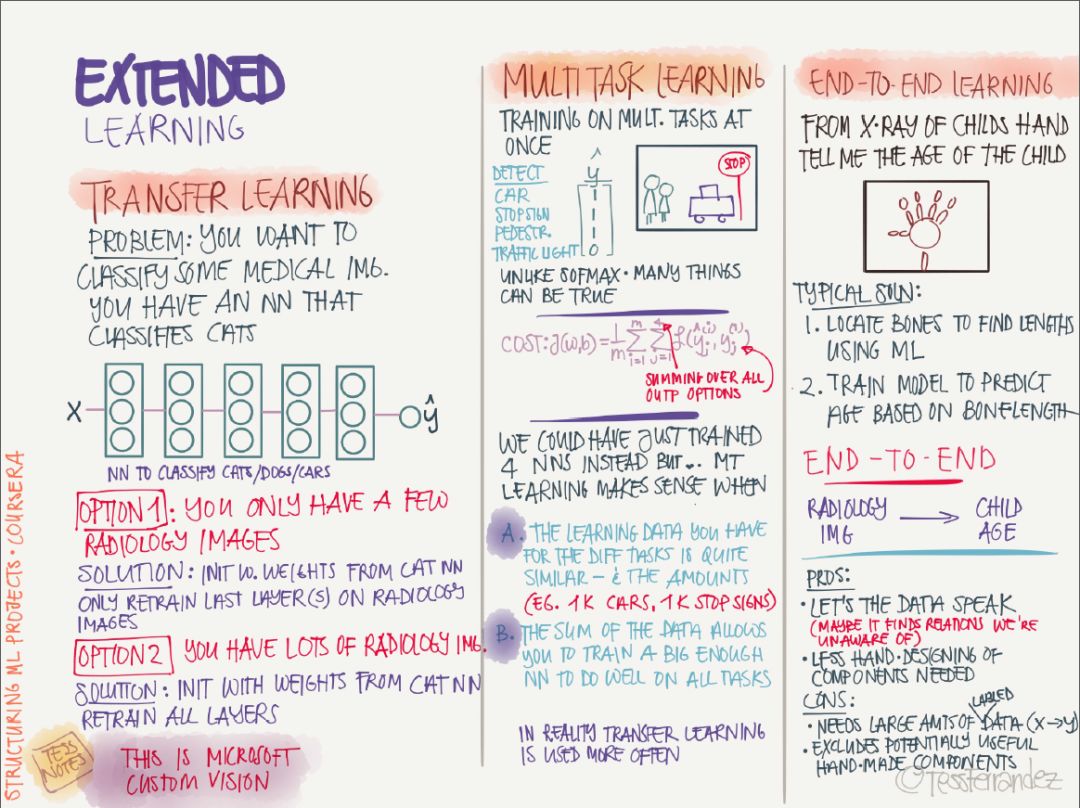 EXTENDED
LEARNING
TRANSFER LEARNING
PROBLEM: YOU WANT TO
CLASSIFY SOME MEDICAL IMG.
YOU HAVE AN NN THAT
CLASSIFIES CATS
X ŷ
NN TO CLASSIFY CATS/DOGS/CARS
OPTION 1: YOU ONLY HAVE A FEW
RADIOLOGY IMAGES
SOLUTION: INIT W. WEIGHTS FROM CAT NN
ONLY RETRAIN LAST LAYER(S) ON RADIOLOGY
IMAGES
OPTION 2 YOU HAVE LOTS OF RADIOLOGY IMG.
SOLUTION: INIT WITH WEIGHTS FROM CAT NN
RETRAIN ALL LAYERS
THIS IS MICROSOFT
CUSTOM VISION
TESS
NOTES
STRUCTURING ML PROJECTS · COURSERA
MULTI TASK LEARNING
TRAINING ON MULT. TASKS AT
ONCE
DETECT ŷ
CAR 1
STOPSIGN 1
PEDESTR. 1
TRAFFIC LIGHT 0
STOP
UNLIKE SOFMAX · MANY THINGS
CAN BE TRUE
COST: J(w,b) = 1/m Σ i=1 m Σ j=1 4 L(ŷj(i), yj(i))
SUMMING OVER ALL
OUTP OPTIONS
WE COULD HAVE JUST TRAINED
4 NNS INSTEAD BUT... MT
LEARNING MAKES SENSE WHEN
A. THE LEARNING DATA YOU HAVE
FOR THE DIFF TASKS IS QUITE
SIMILAR - & THE AMOUNTS
(EG. 1K CARS, 1K STOP SIGNS)
B. THE SUM OF THE DATA ALLOWS
YOU TO TRAIN A BIG ENOUGH
NN TO DO WELL ON ALL TASKS
IN REALITY TRANSFER LEARNING
IS USED MORE OFTEN
END-TO-END LEARNING
FROM X-RAY OF CHILDS HAND
TELL ME THE AGE OF THE CHILD
TYPICAL SOLN:
1. LOCATE BONES TO FIND LENGTHS
USING ML
2. TRAIN MODEL TO PREDICT
AGE BASED ON BONELENGTH
END-TO-END
RADIOLOGY → CHILD
IMG AGE
PROS:
• LET'S THE DATA SPEAK
(MAYBE IT FINDS RELATIONS WE'RE
UNAWARE OF)
• LESS HAND-DESIGNING OF
COMPONENTS NEEDED
CONS:
LABLED
• NEEDS LARGE AMTS OF DATA (X→Y)
• EXCLUDES POTENTIALLY USEFUL
HAND-MADE COMPONENTS
@TessFerrandez